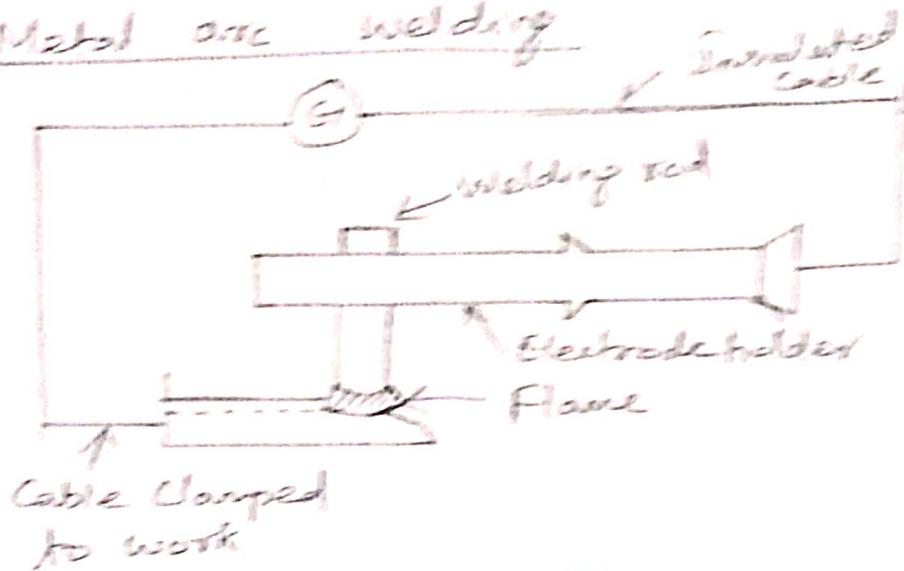 Metal arc welding
Insulated
cable
G
Welding rod
Electrode holder
Flame
Cable Clamped
to work